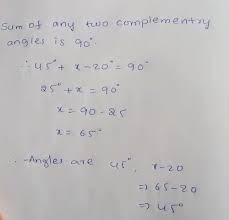 Sum of any two complementry
angles is 90°.
∴ 45° + x - 20° = 90°
25° + x = 90°
x = 90 - 25
x = 65°
∴ Angles are 45°, x-20
⇒ 65-20
⇒ 45°